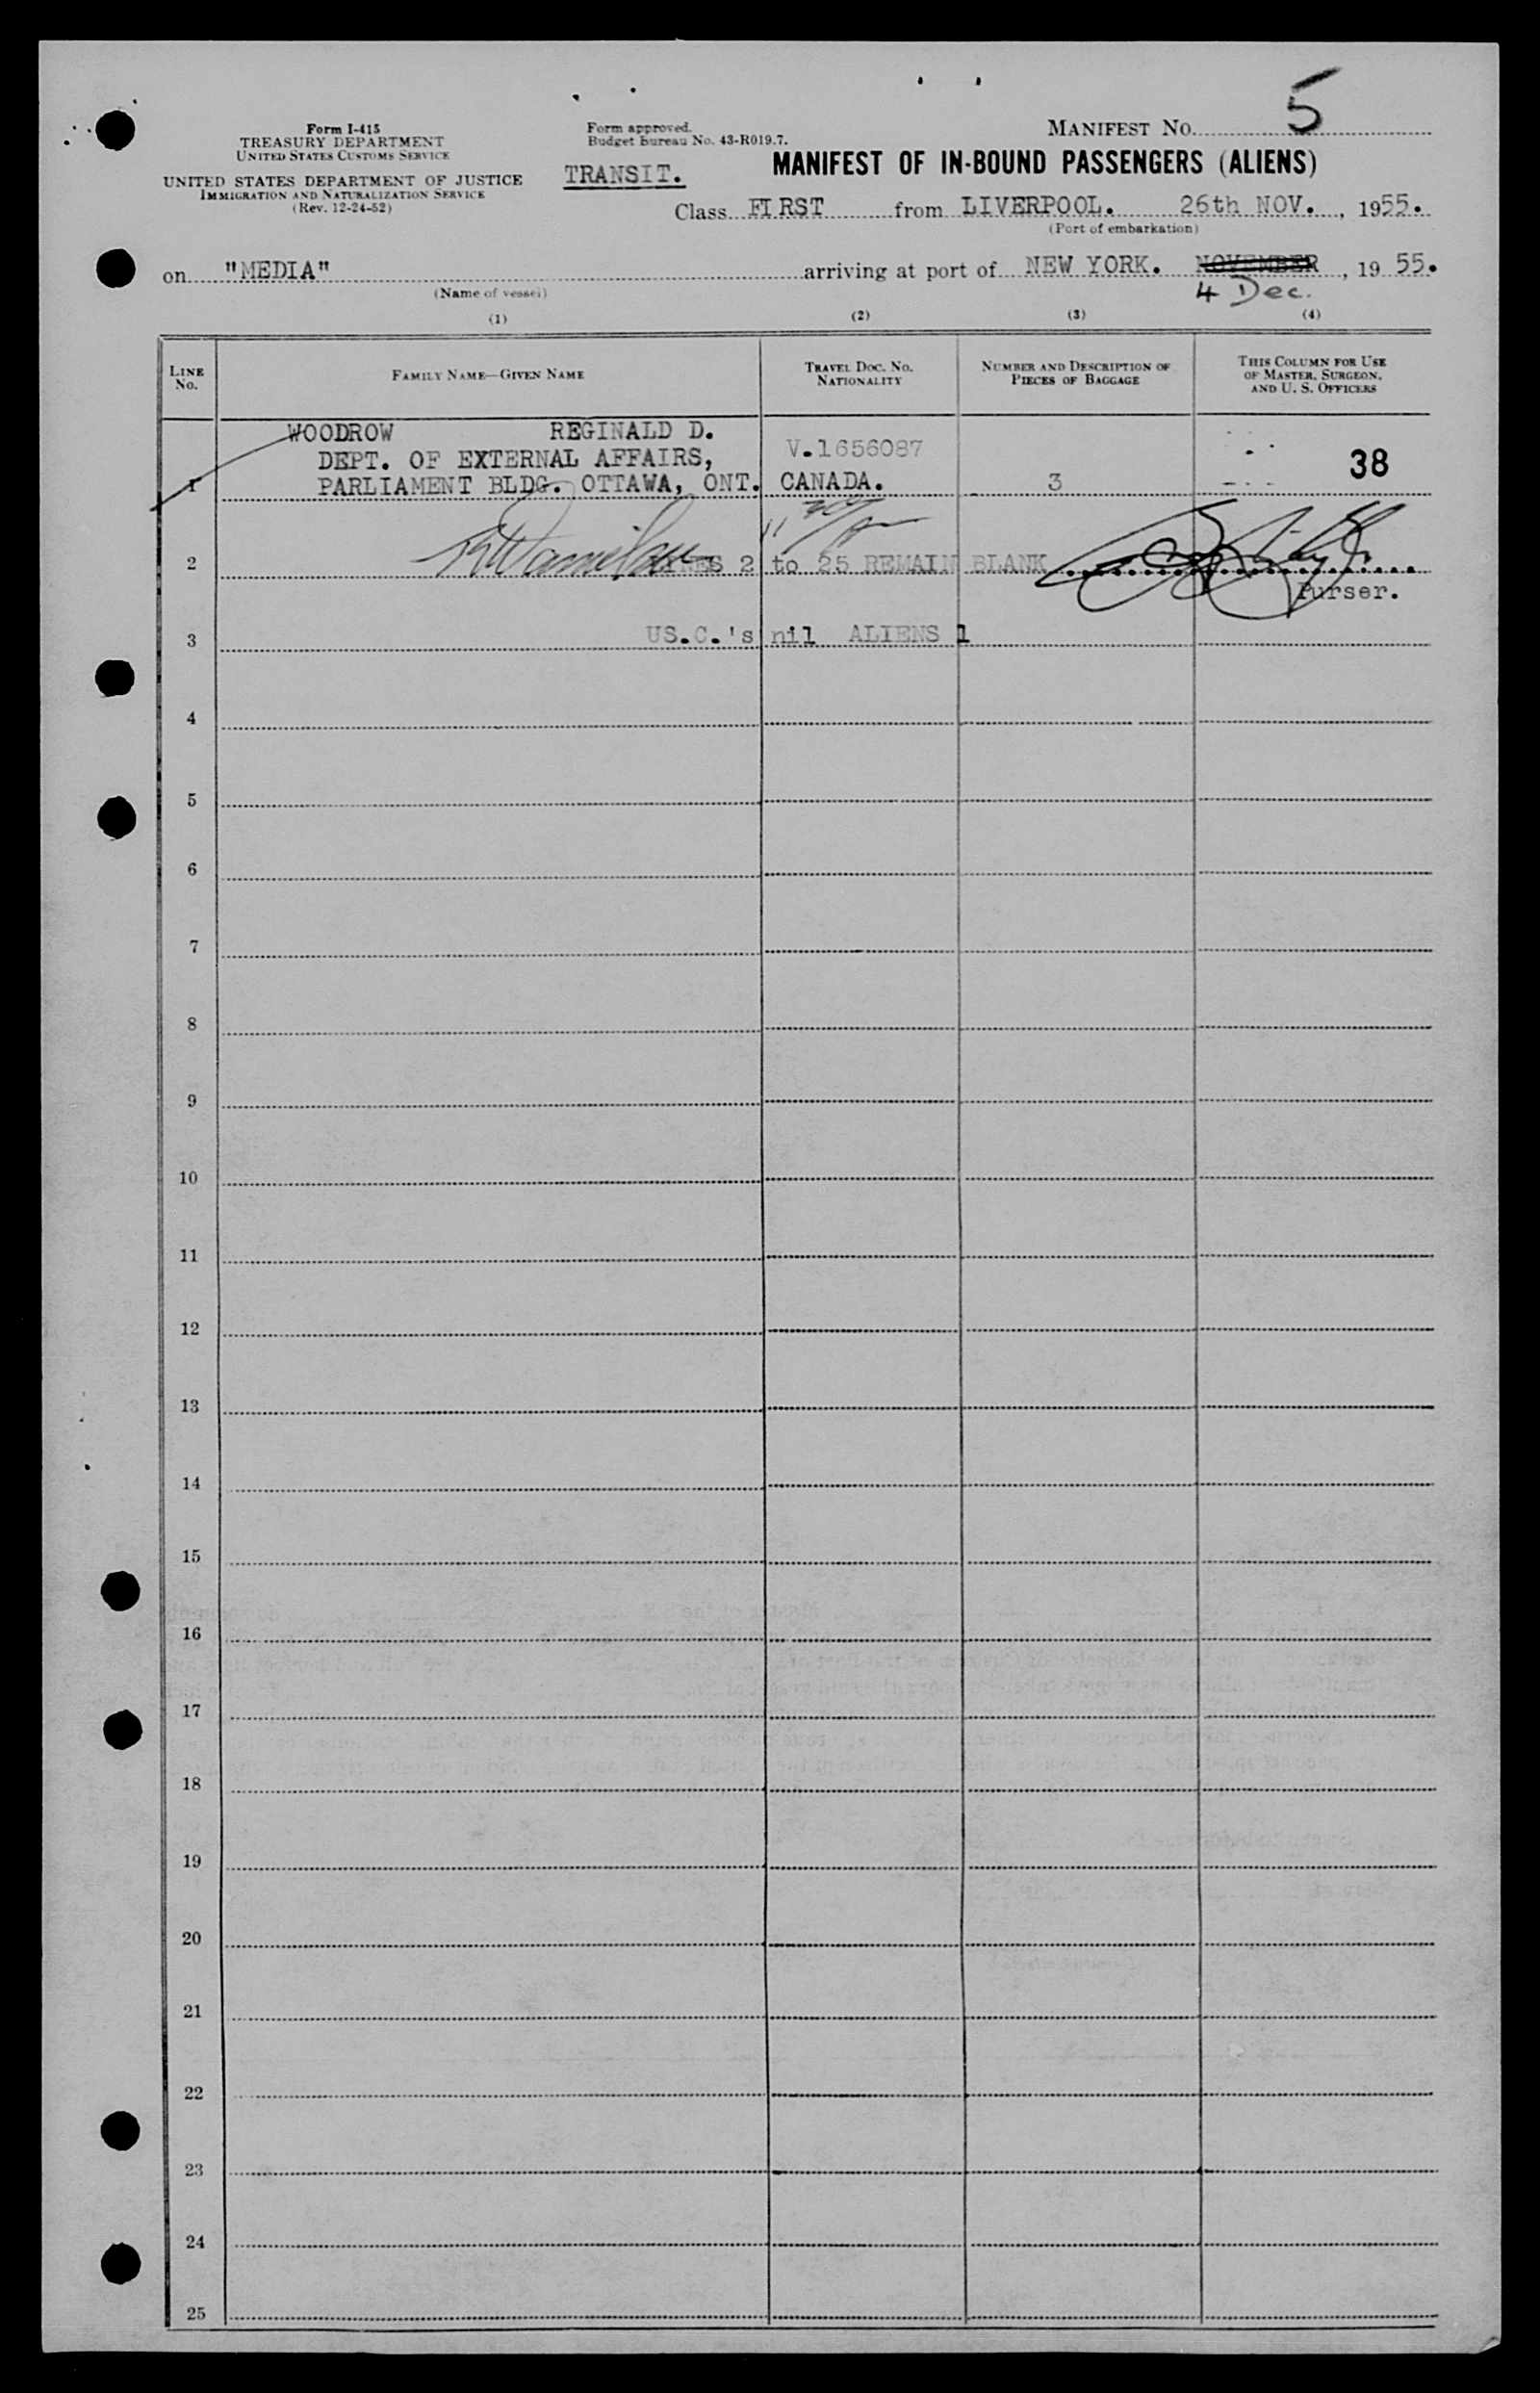 Form I-415
TREASURY DEPARTMENT
UNITED STATES CUSTOMS SERVICE
UNITED STATES DEPARTMENT OF JUSTICE
IMMIGRATION AND NATURALIZATION SERVICE
(Rev. 12-24-52)
Form approved.
Budget bureau No. 43-R019.7.
MANIFEST NO. 5
TRANSIT.
MANIFEST OF IN-BOUND PASSENGERS (ALIENS)
Class FIRST from LIVERPOOL. 26th NOV. , 1955.
(Port of embarkation)
on "MEDIA" arriving at port of NEW YORK. NOVEMBER , 19 55.
4 Dec.
(Name of vessel)
(1) (2) (3) (4)
LINE NO.
FAMILY NAME—GIVEN NAME
TRAVEL DOC. NO.
NATIONALITY
NUMBER AND DESCRIPTION OF
PIECES OF BAGGAGE
THIS COLUMN FOR USE
OF MASTER, SURGEON,
AND U. S. OFFICERS
WOODROW REGINALD D.
DEPT. OF EXTERNAL AFFAIRS, V.1656087 38
1 PARLIAMENT BLDG. OTTAWA, ONT. CANADA. 3
2 LINES 2 to 25 REMAIN BLANK
Purser.
3 US.C.'s nil ALIENS 1
4
5
6
7
8
9
10
11
12
13
14
15
16
17
18
19
20
21
22
23
24
25